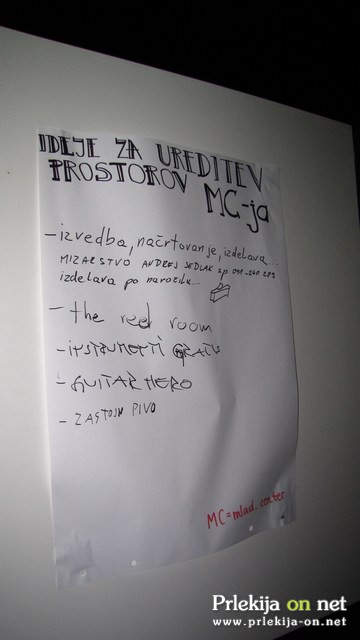 IDEJE ZA UREDITEV
PROSTOROV MC-ja
- izvedba, načrtovanje, izdelava...
MIZARSTVO ANDREJ SEDLAK s.p.
izdelava po naročilu...
- the red room
- INSTRUMENTI
- GUITAR HERO
- ZASTOJN PIVO
MC = mlad. center
Prlekija on net
www.prlekija-on.net